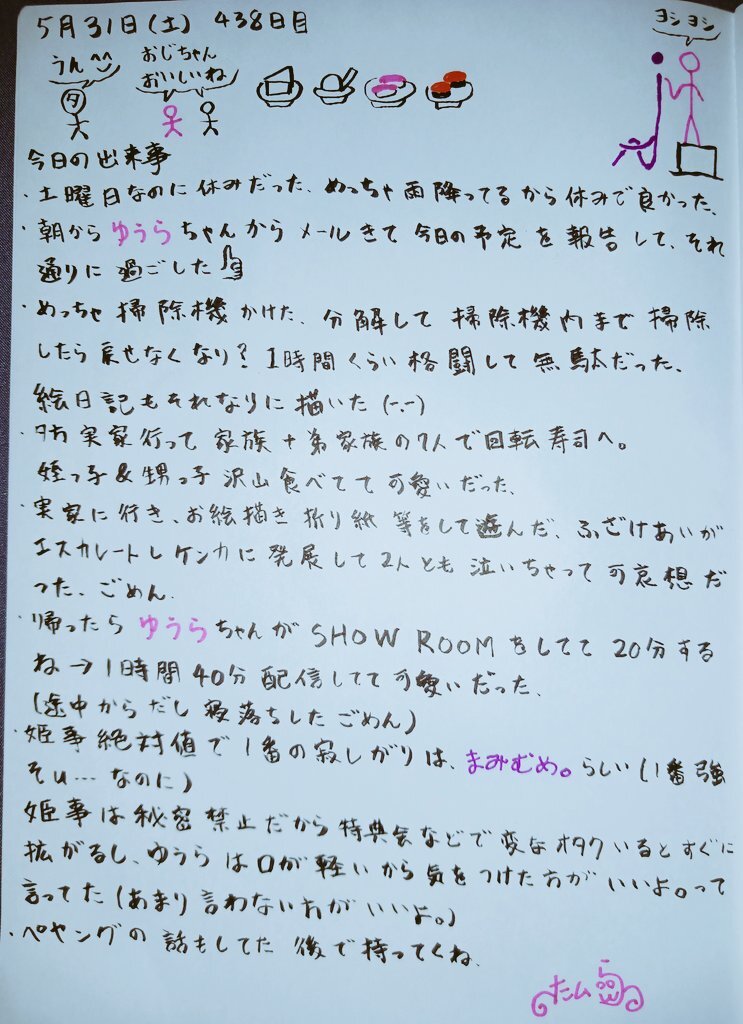 5月31日(土) 438日目
ヨシヨシ
うん^^
おじちゃん
おいしいね
タ
今日の出来事
・土曜日なのに休みだった、めっちゃ雨降ってるから休みで良かった、
・朝からゆうらちゃんからメールきて今日の予定を報告して、それ
通りに過ごした
・めっちゃ掃除機かけた、分解して掃除機内まで掃除
したら戻せなくなり?1時間くらい格闘して無駄だった、
絵日記もそれなりに描いた(-.-)
・夕方実家行って家族+弟家族の7人で回転寿司へ。
姪っ子&甥っ子沢山食べてて可愛いだった、
・実家に行き、お絵描き折り紙等をして遊んだ、ふざけあいが
エスカレートしケンカに発展して2人とも泣いちゃって可哀想だ
った、ごめん、
・帰ったらゆうらちゃんがSHOW ROOMをしてて20分する
ね→1時間40分配信してて可愛いだった、
(途中からだし寝落ちしたごめん)
・姫事絶対値で1番の寂しがりは、まみむめ。らしい(1番強
そu…なのに)
姫事は秘密禁止だから特典会などで変なオタクいるとすぐに
拡がるし、ゆうらは口が軽いから気をつけた方がいいよ。って
言ってた(あまり言わない方がいいよ。)
・ペヤングの話もしてた後で持ってくね、